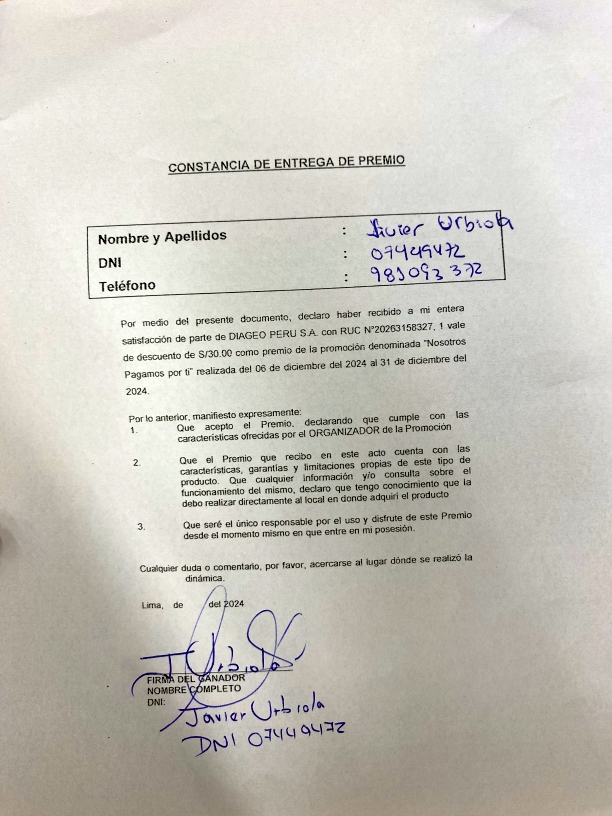 CONSTANCIA DE ENTREGA DE PREMIO
Nombre y Apellidos : Javier Urbiola
DNI : 07449472
Teléfono : 981093372
Por medio del presente documento, declaro haber recibido a mi entera
satisfacción de parte de DIAGEO PERU S.A. con RUC N°20263158327, 1 vale
de descuento de S/30.00 como premio de la promoción denominada "Nosotros
Pagamos por ti" realizada del 06 de diciembre del 2024 al 31 de diciembre del
2024.
Por lo anterior, manifiesto expresamente:
1. Que acepto el Premio, declarando que cumple con las
características ofrecidas por el ORGANIZADOR de la Promoción
2. Que el Premio que recibo en este acto cuenta con las
características, garantías y limitaciones propias de este tipo de
producto. Que cualquier información y/o consulta sobre el
funcionamiento del mismo, declaro que tengo conocimiento que la
debo realizar directamente al local en donde adquirí el producto
3. Que seré el único responsable por el uso y disfrute de este Premio
desde el momento mismo en que entre en mi posesión.
Cualquier duda o comentario, por favor, acercarse al lugar dónde se realizó la
dinámica.
Lima, de del 2024
J Urbiola
FIRMA DEL GANADOR
NOMBRE COMPLETO
DNI:
Javier Urbiola
DNI 07449472